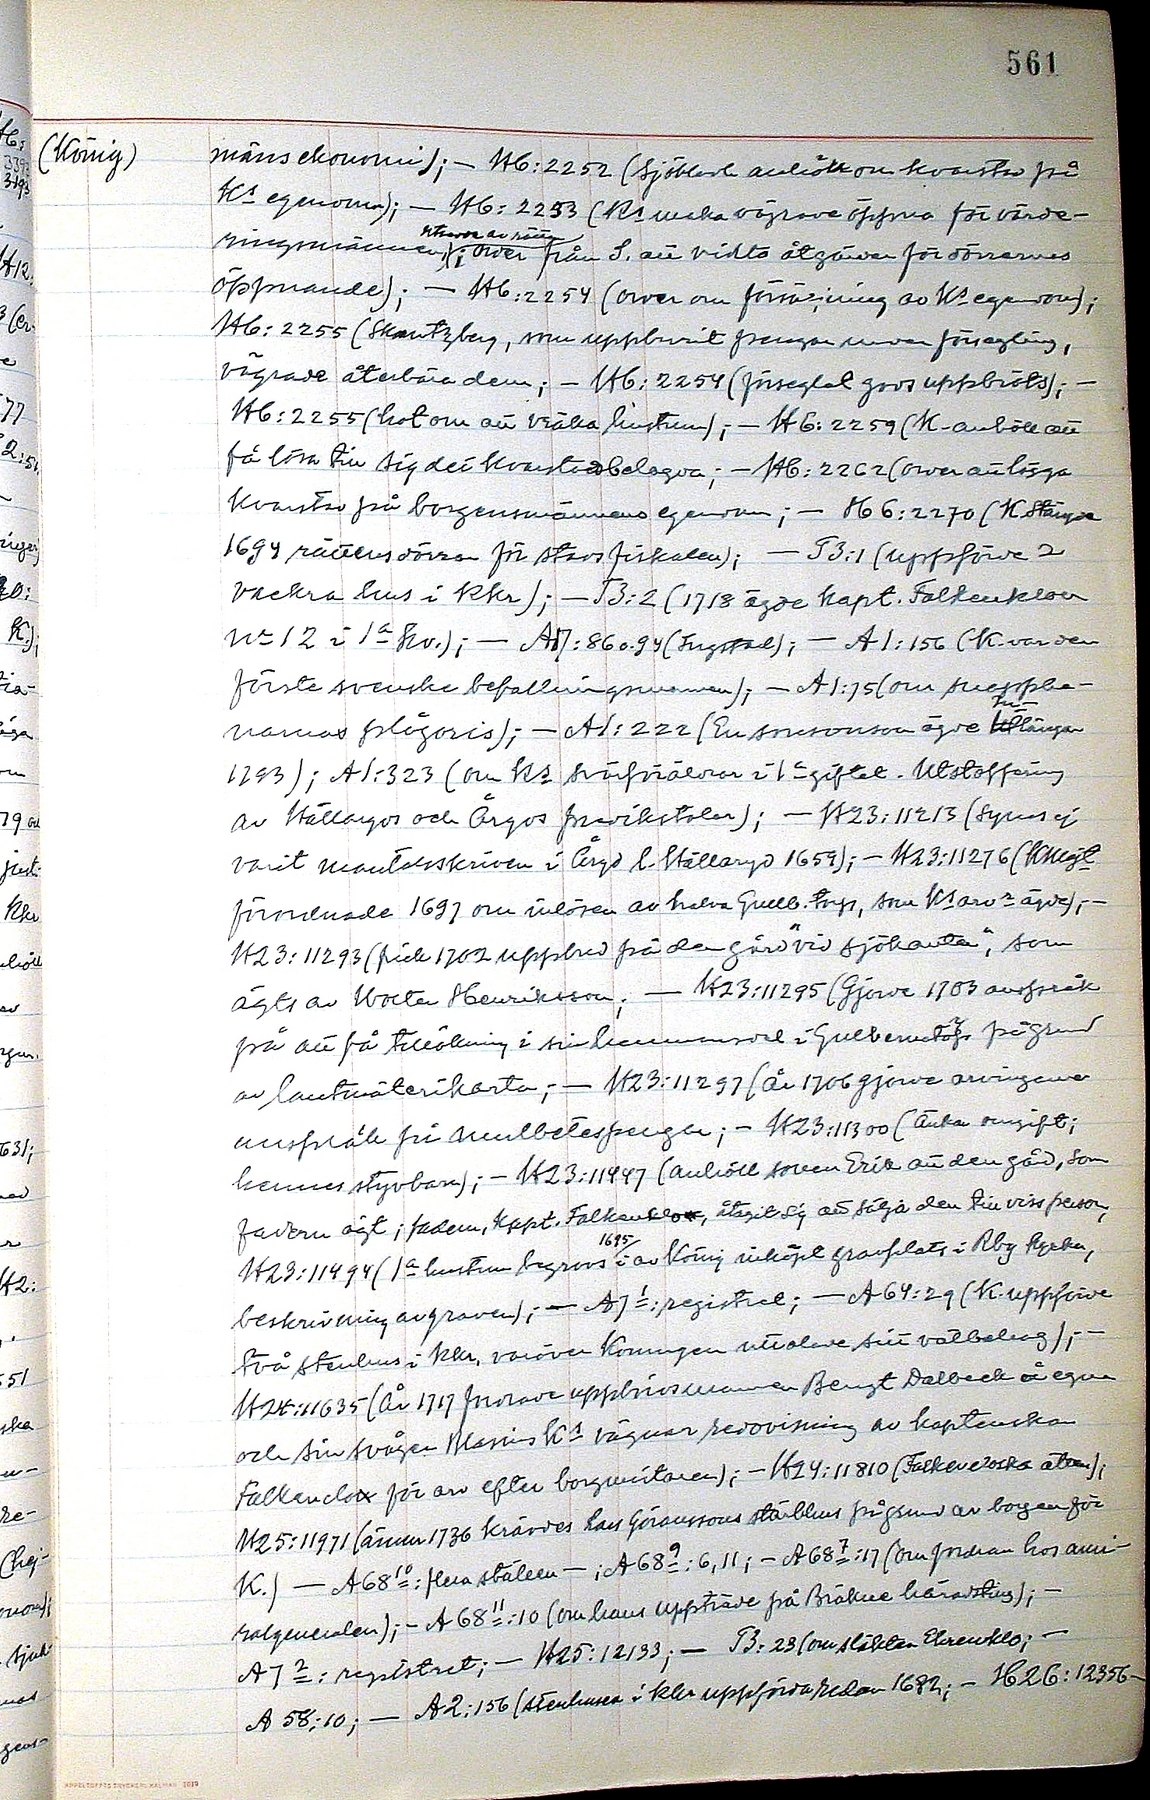 561
(König)
mäns ekonomi); — H6:2252 (Sjöblad anhöll om kvarstad på
Ks egendom); — H6:2253 (Ks maka vägrade öppna för värde-
ringsmännen); order från S. att vidta åtgärder för dörrarnes
öppnande); — H6:2254 (order om försäljning av Ks egendom);
H6:2255 (Skantzberg, som uppburit pengar under försegling,
vägrade återbära dem; — H6:2254 (förseglat gods uppbröts); —
H6:2255 (hot om att vräka hustrun); — H6:2259 (K. anböd att
få lösa till sig det kvarstadsbelagda; — H6:2262 (order att lägga
kvarstad på borgensmännens egendom; — H6:2270 (K stängde
1694 rättens dörrar för stadsfiskalen); — T3:1 (uppförde 2
vackra hus i Kkr); — T3:2 (1718 ägde kapt. Falkenklou
nr 12 i 1a kv.); — A17:86 o. 94 — A1:156 (K. var den
förste svenske befallningsmannen); — A1:75 (om snappha-
narnas plågoris); — A1:222 (En sonsonson ägde längar
1793); A1:323 (om Ks svärföräldrar i 1a giftet. Utstoffering
av Hällaryds och Åryds predikstolar); — H23:11213 (Synes ej
varit mantalsskriven i Åryd l. Hällaryd 1659); — H23:11276 (KMajt
förordnade 1697 om inlösen av halva Gullb. torp, som Ks arvr ägde); —
H23:11293 (fick 1702 uppbud på den gård "vid sjökanten", som
ägts av Wolter Henriksson; — H23:11295 (Gjorde 1703 anspråk
på att få tillökning i sin hemmansdel i Gullbernatorp på grund
av lantmäterikarta; — H23:11297 (År 1706 gjorde arvingarna
anspråk på mulbetespengar; — H23:11300 (Änka omgift;
hennes styvbarn); — H23:11447 (anhöll sonen Erik att den gård, som
fadern ägt; fadern, kapt. Falkenklou, åtagit sig att sälja den till viss person,
H23:11494 (1a hustrun begrovs 1695 i av König inköpt gravplats i Rby kyrka,
beskrivning av graven); — A71: registret; — A64:29 (K. uppförde
två stenhus i Kkr, varöver Konungen uttalade sitt välbehag); —
H24:11635 (År 1717 fordrade uppbördsmannen Bengt Dalbeck å egna
och sin svåger Magnis Ks vägnar redovisning av kaptenskan
Falkenclou för arv efter borgmästaren); — H24:11810 (Falkenclouska ätten);
H25:11971 (ännu 1736 krävdes Lars Göranssons stärbhus på grund av borgen för
K.) — A6810: flera ställen —; A689:6,11; — A687:17 (om fordran hos ami-
ralgeneralen); — A6811:10 (om hans uppträde på Bräkne häradsting); —
A72: registret; — H25:12133; — T3:23 (om släkten Ehrenklo; —
A58:10; — A2:156 (stenhusen i Kkr uppförda redan 1682; — H26:12356 —